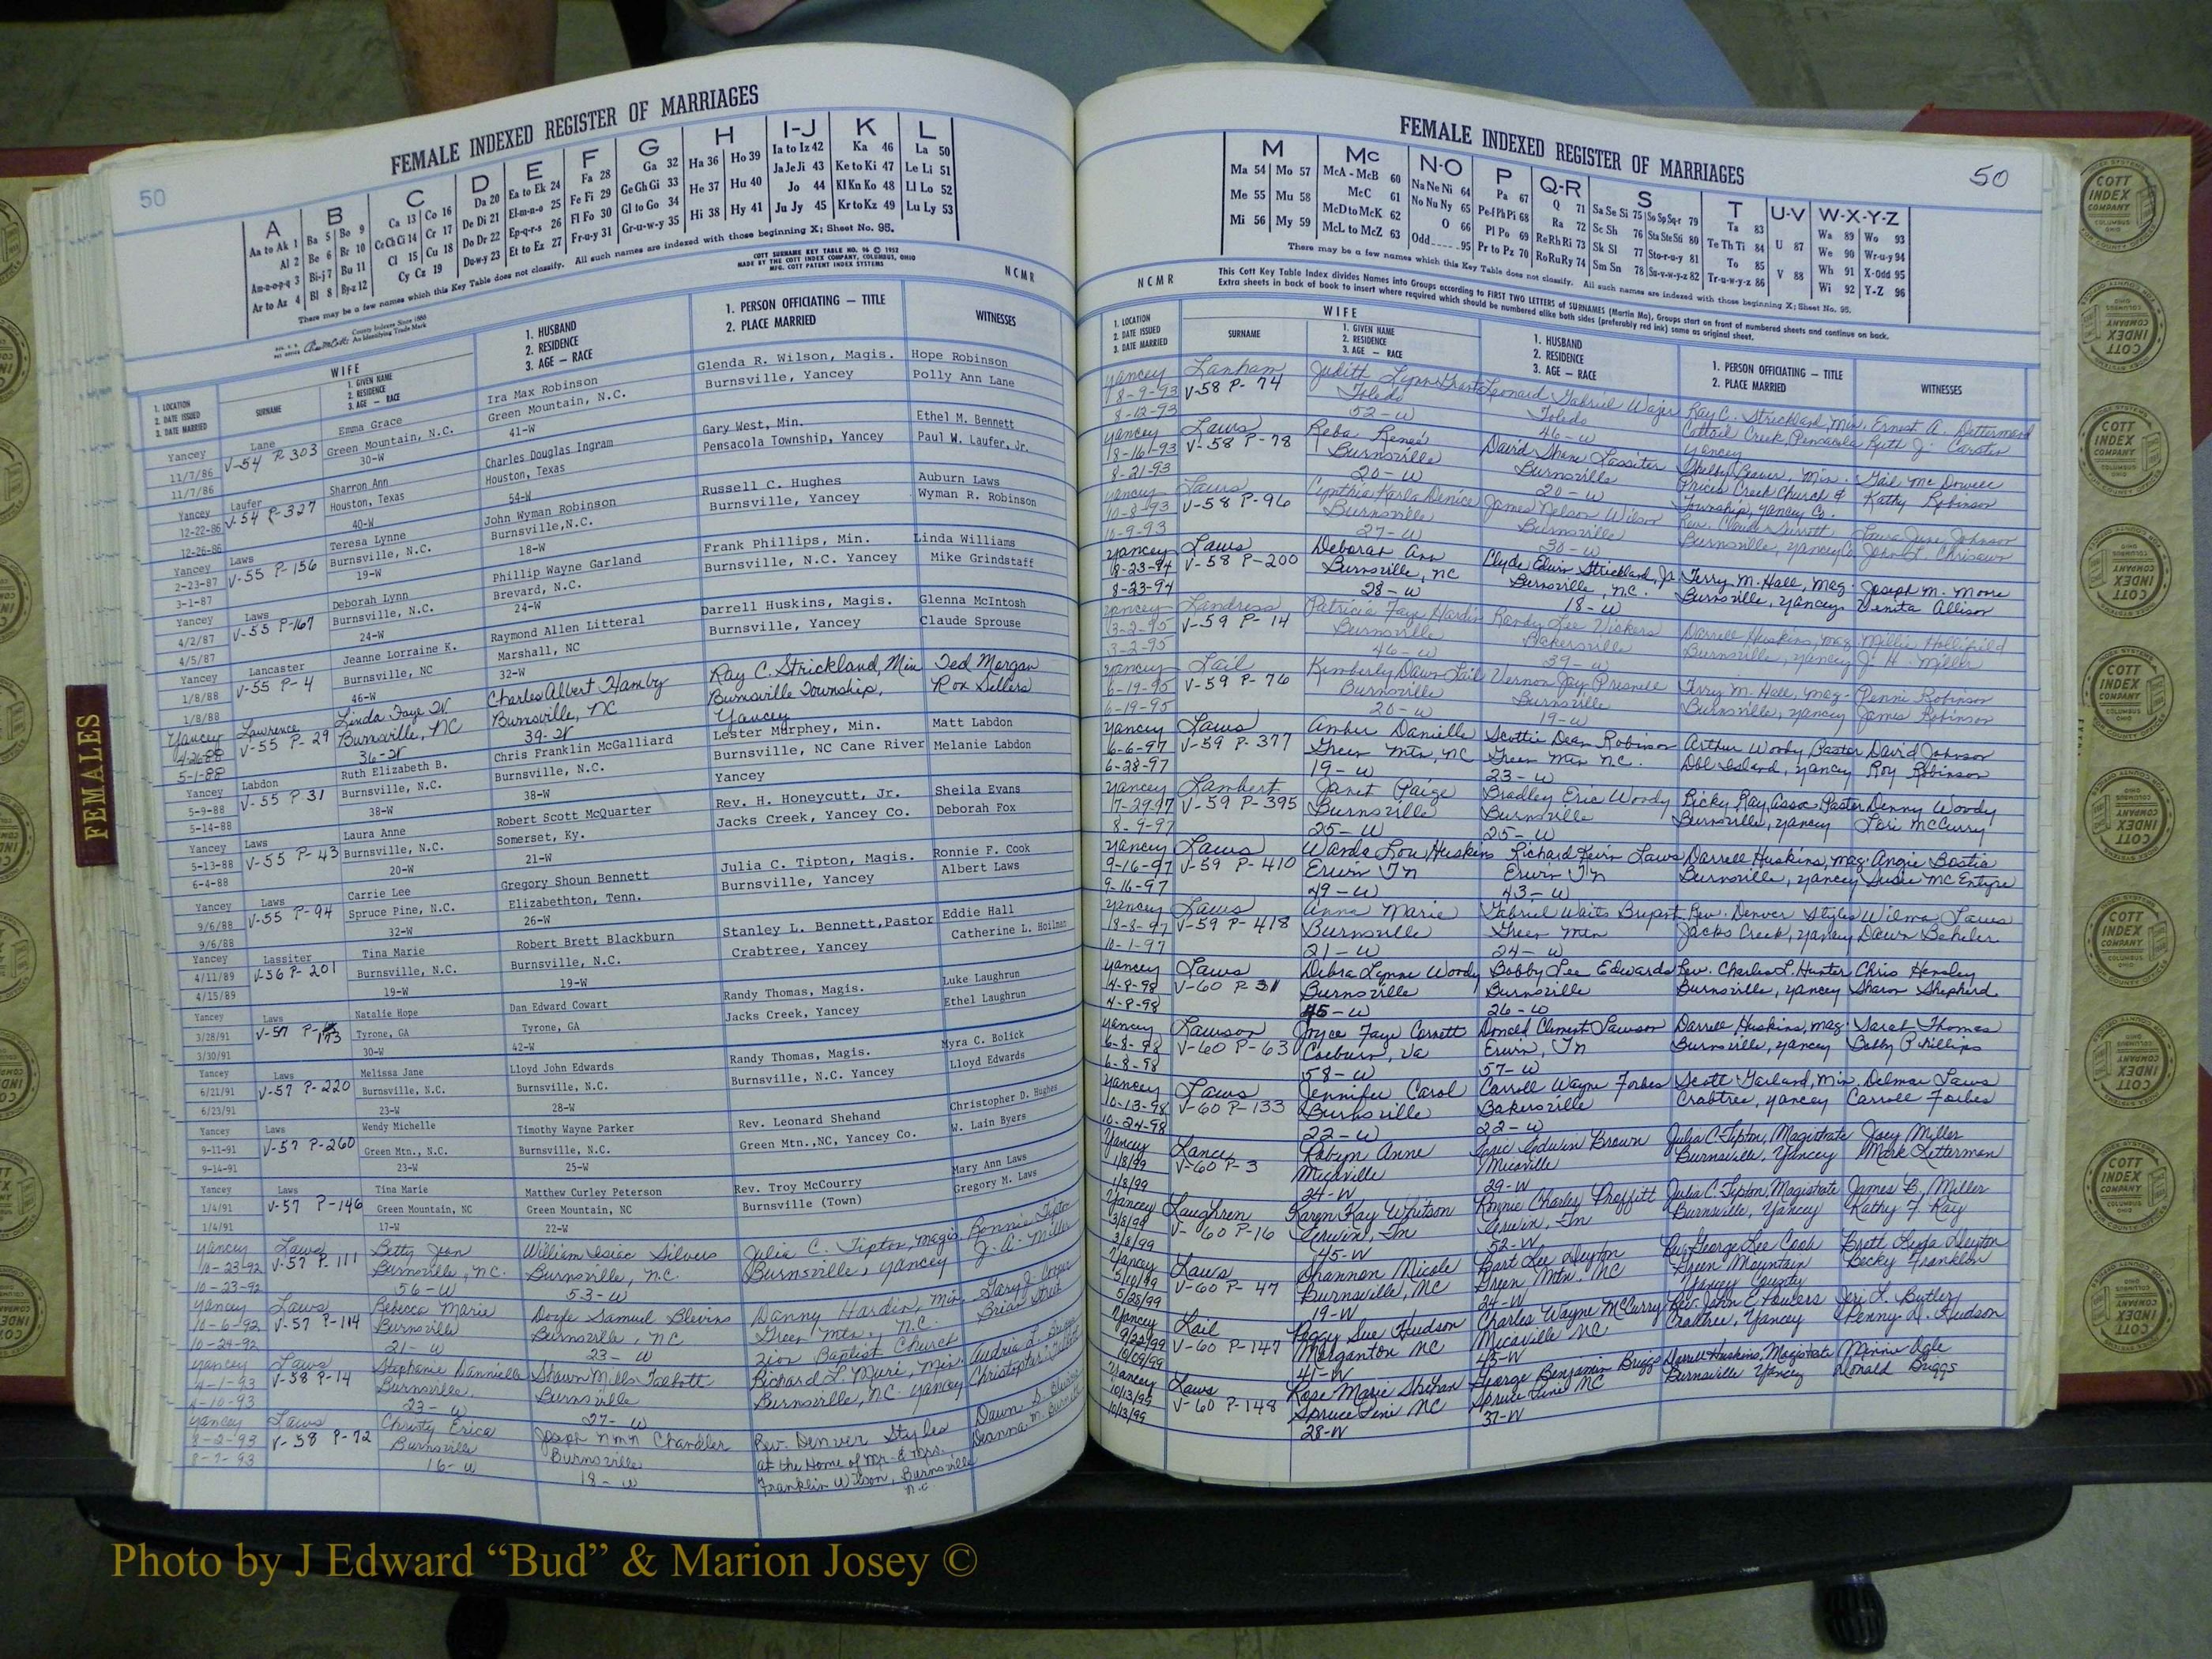 FEMALE INDEXED REGISTER OF MARRIAGES
50
A B C D E F G H I-J K L
Aa to Ak 1 Ba 5 Bo 9 Ca 13 Co 16 Da 20 Ea to Ek 24 Fa 28 Ga 32 Ha 36 Ho 39 Ia to Iz 42 Ka 46 La 50
Al 2 Be 6 Br 10 Ce Ch Ci 14 Cr 17 De Di 21 El-m-n-o 25 Fe Fi 29 Ge Gh Gi 33 He 37 Hu 40 Ja Je Ji 43 Ke to Ki 47 Le Li 51
Am-n-o-p-q 3 Bi-j-7 Bu 11 Cl 15 Cu 18 Do Dr 22 Ep-q-r-s 26 Fl Fo 30 Gl to Go 34 Hi 38 Hy 41 Jo 44 Kl Kn Ko 48 Ll Lo 52
Ar to Az 4 Bl 8 By-z 12 Cy Cz 19 Du-w-y 23 Et to Ez 27 Fr-u-y 31 Gr-u-w-y 35 Ju Jy 45 Kr to Kz 49 Lu Ly 53
There may be a few names which this Key Table does not classify. All such names are indexed with those beginning X; Sheet No. 95.
COTT SURNAME KEY TABLE NO. 96 © 1952
MADE BY THE COTT INDEX COMPANY, COLUMBUS, OHIO
MFG. COTT PATENT INDEX SYSTEMS
NCMR
County Indexes Since 1888
An Identifying Trade Mark
1. LOCATION
2. DATE ISSUED
3. DATE MARRIED
WIFE
SURNAME
1. GIVEN NAME
2. RESIDENCE
3. AGE — RACE
1. HUSBAND
2. RESIDENCE
3. AGE — RACE
1. PERSON OFFICIATING — TITLE
2. PLACE MARRIED
WITNESSES
Yancey Lane Emma Grace Ira Max Robinson Glenda R. Wilson, Magis. Hope Robinson
11/7/86 V-54 P-303 Green Mountain, N.C. Green Mountain, N.C. Burnsville, Yancey Polly Ann Lane
11/7/86 30-W 41-W
Yancey Laufer Sharron Ann Charles Douglas Ingram Gary West, Min. Ethel M. Bennett
12-22-86 V-54 P-327 Houston, Texas Houston, Texas Pensacola Township, Yancey Paul W. Laufer, Jr.
12-26-86 40-W 54-W
Yancey Laws Teresa Lynne John Wyman Robinson Russell C. Hughes Auburn Laws
2-23-87 V-55 P-156 Burnsville, N.C. Burnsville,N.C. Burnsville, Yancey Wyman R. Robinson
3-1-87 19-W 18-W
Yancey Laws Deborah Lynn Phillip Wayne Garland Frank Phillips, Min. Linda Williams
4/2/87 V-55 P-167 Burnsville, N.C. Brevard, N.C. Burnsville, N.C. Yancey Mike Grindstaff
4/5/87 24-W 24-W
Yancey Lancaster Jeanne Lorraine K. Raymond Allen Litteral Darrell Huskins, Magis. Glenna McIntosh
1/8/88 V-55 P-4 Burnsville, NC Marshall, NC Burnsville, Yancey Claude Sprouse
1/8/88 46-W 32-W
Yancey Lawrence Linda Faye W Charles Albert Hamby Ray C. Strickland, Min Ted Morgan
4-26-88 V-55 P-29 Burnsville, NC Burnsville, NC Burnsville Township, Rox Sellers
5-1-88 36-W 39-W Yancey
Yancey Labdon Ruth Elizabeth B. Chris Franklin McGalliard Lester Murphey, Min. Matt Labdon
5-9-88 V-55 P 31 Burnsville, N.C. Burnsville, N.C. Burnsville, NC Cane River Melanie Labdon
5-14-88 38-W 38-W Yancey
Yancey Laws Laura Anne Robert Scott McQuarter Rev. H. Honeycutt, Jr. Sheila Evans
5-13-88 V-55 P-43 Burnsville, N.C. Somerset, Ky. Jacks Creek, Yancey Co. Deborah Fox
6-4-88 20-W 21-W
Yancey Laws Carrie Lee Gregory Shoun Bennett Julia C. Tipton, Magis. Ronnie F. Cook
9/6/88 V-55 P-94 Spruce Pine, N.C. Elizabethton, Tenn. Burnsville, Yancey Albert Laws
9/6/88 32-W 26-W
Yancey Lassiter Tina Marie Robert Brett Blackburn Stanley L. Bennett,Pastor Eddie Hall
4/11/89 V-56 P-201 Burnsville, N.C. Burnsville, N.C. Crabtree, Yancey Catherine L. Hoilman
4/15/89 19-W 19-W
Yancey Laws Natalie Hope Dan Edward Cowart Randy Thomas, Magis. Luke Laughrun
3/28/91 V-57 P-173 Tyrone, GA Tyrone, GA Jacks Creek, Yancey Ethel Laughrun
3/30/91 30-W 42-W
Yancey Laws Melissa Jane Lloyd John Edwards Randy Thomas, Magis. Myra C. Bolick
6/21/91 V-57 P-220 Burnsville, N.C. Burnsville, N.C. Burnsville, N.C. Yancey Lloyd Edwards
6/23/91 23-W 28-W
Yancey Laws Wendy Michelle Timothy Wayne Parker Rev. Leonard Shehand Christopher D. Hughes
9-11-91 V-57 P-260 Green Mtn., N.C. Burnsville, N.C. Green Mtn.,NC, Yancey Co. W. Lain Byers
9-14-91 23-W 25-W
Yancey Laws Tina Marie Matthew Curley Peterson Rev. Troy McCourry Mary Ann Laws
1/4/91 V-57 P-146 Green Mountain, NC Green Mountain, NC Burnsville (Town) Gregory M. Laws
1/4/91 17-W 22-W
Yancey Laws Betty Jean William Isiac Silvers Julia C. Tipton, Magis. Ronnie Tipton
10-23-92 V-57 P-111 Burnsville, N.C. Burnsville, N.C. Burnsville, Yancey J. A. Miller
10-23-92 56-W 53-W
Yancey Laws Rebecca Marie Doyle Samuel Blevins Danny Hardin, Min Gary J.
10-6-92 V-57 P-114 Burnsville Burnsville, NC Green Mtn., N.C. Brian
10-24-92 21-W 23-W Zion Baptist Church
Yancey Laws Stephanie Dannielle Shawn Mills Talbott Richard L. Muri, Min. Audria L.
4-1-93 V-58 P-14 Burnsville Burnsville Burnsville, NC. Yancey Christopher
4-10-93 23-W 27-W
Yancey Laws Christy Erica Joseph nmn Chandler Rev. Denver Styles Dawn S. Blevins
8-2-93 V-58 P-72 Burnsville Burnsville at the Home of Mr. & Mrs. Deanna M.
8-7-93 16-W 18-W Franklin Wilson, Burnsville
N.C
FEMALE INDEXED REGISTER OF MARRIAGES
50
M Mc N-O P Q-R S T U-V W-X-Y-Z
Ma 54 Mo 57 McA - McB 60 Na Ne Ni 64 Pa 67 Q 71 Sa Se Si 75 So Sp Sq-r 79 Ta 83 U 87 Wa 89 Wo 93
Me 55 Mu 58 McC 61 No Nu Ny 65 Pe-f Ph Pi 68 Ra 72 Sc Sh 76 Sta Ste Sti 80 Te Th Ti 84 V 88 We 90 Wr-u-y 94
Mi 56 My 59 McD to McK 62 O 66 Pl Po 69 Re Rh Ri 73 Sk Sl 77 Sto-r-u-y 81 To 85 Wh 91 X-Odd 95
McL to McZ 63 Odd 95 Pr to Pz 70 Ro Ru Ry 74 Sm Sn 78 Su-v-w-y-z 82 Tr-u-w-y-z 86 Wi 92 Y-Z 96
There may be a few names which this Key Table does not classify. All such names are indexed with those beginning X; Sheet No. 95.
NCMR
This Cott Key Table Index divides Names into Groups according to FIRST TWO LETTERS of SURNAMES (Martin Ma), Groups start on front of numbered sheets and continue on back.
Extra sheets in back of book to insert where required which should be numbered alike both sides (preferably red ink) same as original sheet.
1. LOCATION
2. DATE ISSUED
3. DATE MARRIED
WIFE
SURNAME
1. GIVEN NAME
2. RESIDENCE
3. AGE — RACE
1. HUSBAND
2. RESIDENCE
3. AGE — RACE
1. PERSON OFFICIATING — TITLE
2. PLACE MARRIED
WITNESSES
Yancey Lanham Judith Lynn Leonard Gabriel Wajer Ray C. Strickland, Min. Ernest A. Detterman
8-9-93 V-58 P-74 Toledo Toledo Cattail Creek, Pensacola Ruth J. Carsten
8-12-93 52-W 46-W Yancey
Yancey Laws Reba Renee David Shane Lassiter Shelby Beaver, Min. Gail McDowell
8-16-93 V-58 P-78 Burnsville Burnsville Prices Creek Church & Kathy Robinson
8-21-93 20-W 20-W Township, Yancey Co.
Yancey Laws Cynthia Karla Denice James Nelson Wilson Rev. Laura Jane Johnson
10-8-93 V-58 P-96 Burnsville Burnsville Burnsville, Yancey Co John L. Chrisawn
10-9-93 27-W 30-W
Yancey Laws Deborah Ann Clyde Edwin Strickland, Jr. Terry M. Hall, Mag. Joseph M. Moore
8-23-94 V-58 P-200 Burnsville, NC Burnsville, N.C. Burnsville, Yancey Venita Allison
8-23-94 28-W 18-W
Yancey Landress Patricia Faye Hardin Randy Lee Vickers Darrell Huskins, Mag. Millie Hollifield
3-2-95 V-59 P-14 Burnsville Bakersville Burnsville, Yancey J. H. Miller
3-2-95 46-W 39-W
Yancey Lail Kimberly Dawn Lail Vernon Jay Presnell Terry M. Hall, Mag. Pennie Robinson
6-19-95 V-59 P-76 Burnsville Burnsville Burnsville, Yancey James Robinson
6-19-95 20-W 19-W
Yancey Laws Amber Danielle Scottie Dean Robinson Arthur Woody Pastor David Johnson
6-6-97 V-59 P-377 Green Mtn, NC Green Mtn N.C. Dbl Island, Yancey Roy Robinson
6-28-97 19-W 23-W
Yancey Lambert Janet Paige Bradley Eric Woody Ricky Ray, Assoc Pastor Denny Woody
7-29-97 V-59 P-395 Burnsville Burnsville Burnsville, Yancey Lori McCurry
8-9-97 25-W 25-W
Yancey Laws Wanda Lou Huskins Richard Kevin Laws Darrell Huskins, Mag. Angie Bostic
9-16-97 V-59 P-410 Erwin Tn Erwin Tn Burnsville, Yancey Susie McEntyre
9-16-97 49-W 43-W
Yancey Laws Anna Marie Gabriel Waits Bryant Rev. Denver Styles Wilma Laws
V-59 P-418 Burnsville Green Mtn Jacks Creek, Yancey Dawn Bekeler
10-1-97 21-W 24-W
Yancey Laws Debra Lynne Woody Bobby Lee Edwards Rev. Charles L. Hunter Chris Hensley
4-8-98 V-60 P-31 Burnsville Burnsville Burnsville, Yancey Sharon Shepherd
4-8-98 45-W 26-W
Yancey Lawson Joyce Faye Cornett Donald Clement Lawson Darrell Huskins, Mag. Sarah Thomas
6-8-98 V-60 P-63 Coeburn, Va Erwin, Tn Burnsville, Yancey Bobby Phillips
6-8-98 58-W 57-W
Yancey Laws Jennifer Carol Carroll Wayne Forbes Scott Garland, Min. Delmar Laws
10-13-98 V-60 P-133 Burnsville Bakersville Crabtree, Yancey Carroll Forbes
10-24-98 22-W 22-W
Yancey Lance Robyn Anne Eric Edwin Brown Julia C. Tipton, Magistrate Joey Miller
1/8/99 V-60 P-3 Micaville Micaville Burnsville, Yancey Mark Letterman
1/8/99 24-W 29-W
Yancey Laughren Karen Kay Whitson Ronnie Charles Proffitt Julia C. Tipton, Magistrate James B. Miller
3/8/99 V-60 P-16 Erwin, Tn Erwin, Tn Burnsville, Yancey Kathy F. Ray
3/8/99 45-W 52-W
Yancey Laws Shannon Nicole Bart Lee Deyton Rev. George Lee Cook Brett Lyda Deyton
5/10/99 V-60 P-47 Burnsville, NC Green Mtn. NC Green Mountain Becky Franklin
5/25/99 19-W 24-W Yancey County
Yancey Lail Peggy Sue Hudson Charles Wayne McCurry Rev. John C. Powers Jeri L. Butler
9/22/99 V-60 P-147 Morganton NC Micaville NC Crabtree, Yancey Penny D. Hudson
10/09/99 41-W 45-W
Yancey Laws Rose Marie Shehan George Benjamin Briggs Darrell Huskins, Magistrate Minnie Ogle
10/13/99 V-60 P-148 Spruce Pine NC Spruce Pine NC Burnsville Yancey Donald Briggs
10/13/99 28-W 37-W
FEMALES
COTT INDEX COMPANY COLUMBUS OHIO
Photo by J Edward “Bud” & Marion Josey ©